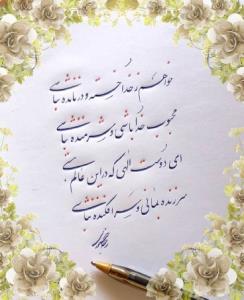 خواهم ز خدا خسته و درمانده نباشی
محبوب خدا باشی و شرمنده نباشی
ای دوست الهی که در این عالم
سرزنده بمانی و سرافکنده نباشی